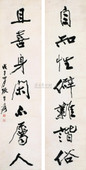 自知性僻難諧俗
且喜身閑不屬人